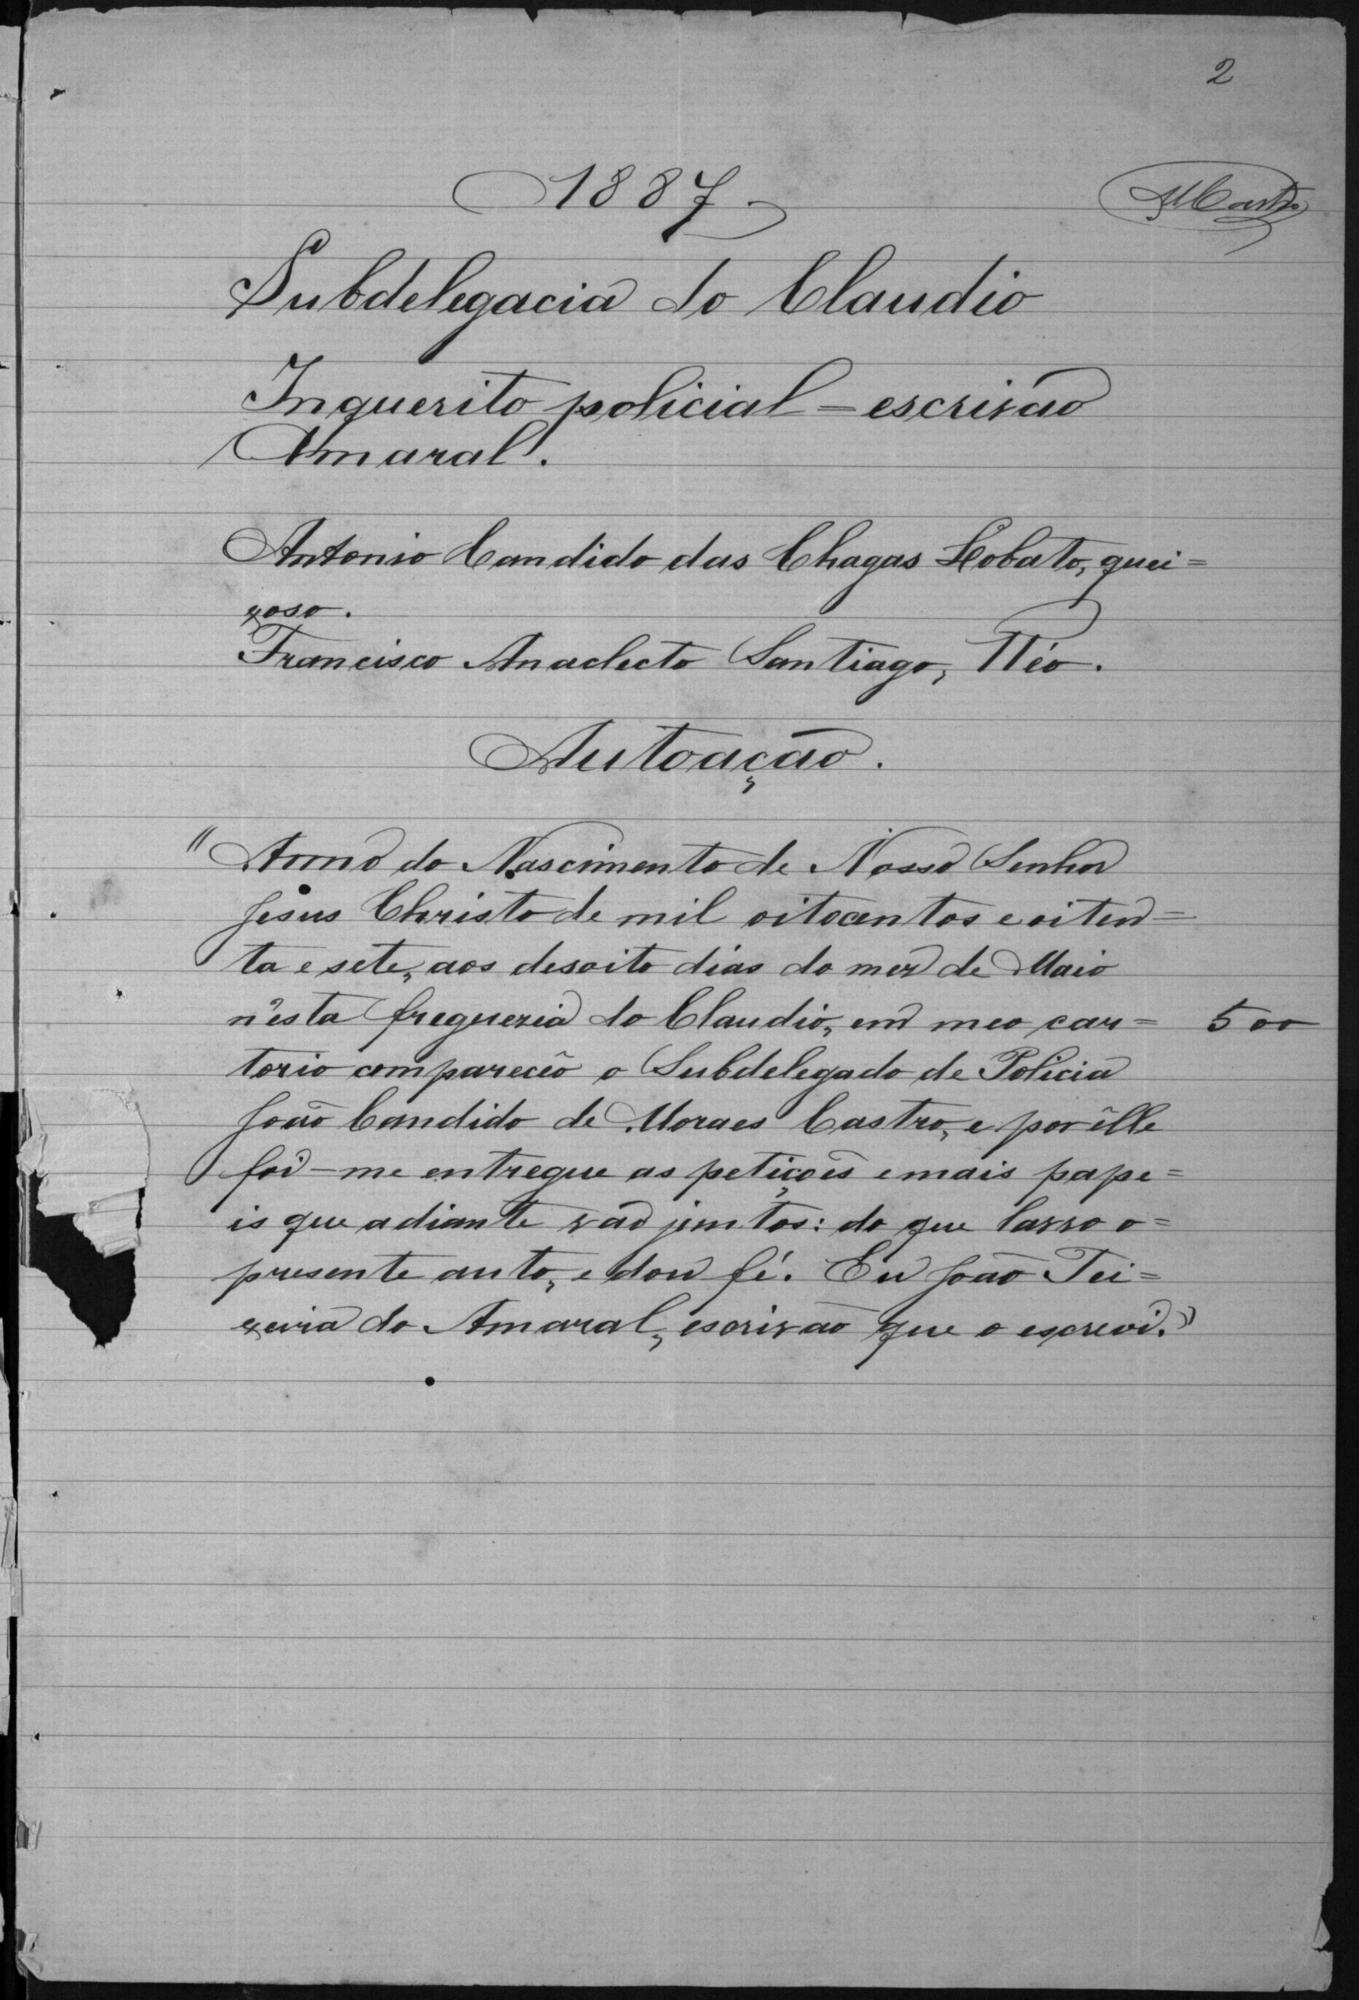 2
1887
MCastro
Subdelegacia do Claudio
Inquerito policial = escrivão
Amaral.
Antonio Candido das Chagas Lobato, quei=
xoso.
Francisco Anacleto Santiago, Réo.
Autoação.
"Anno do Nascimento de Nosso Senhor
Jesus Christo de mil oitocentos e oiten=
ta e sete, aos desoito dias do mez de Maio
n'esta freguezia do Claudio, em meo car=
500
torio compareceo o Subdelegado de Policia
João Candido de Moraes Castro, e por êlle
foi-me entregue as petiçoẽs e mais pape=
is que adiante vão juntos: do que lavro o=
presente auto, e dou fé. Eu João Tei=
xeira do Amaral, escrivão que o escrevi."